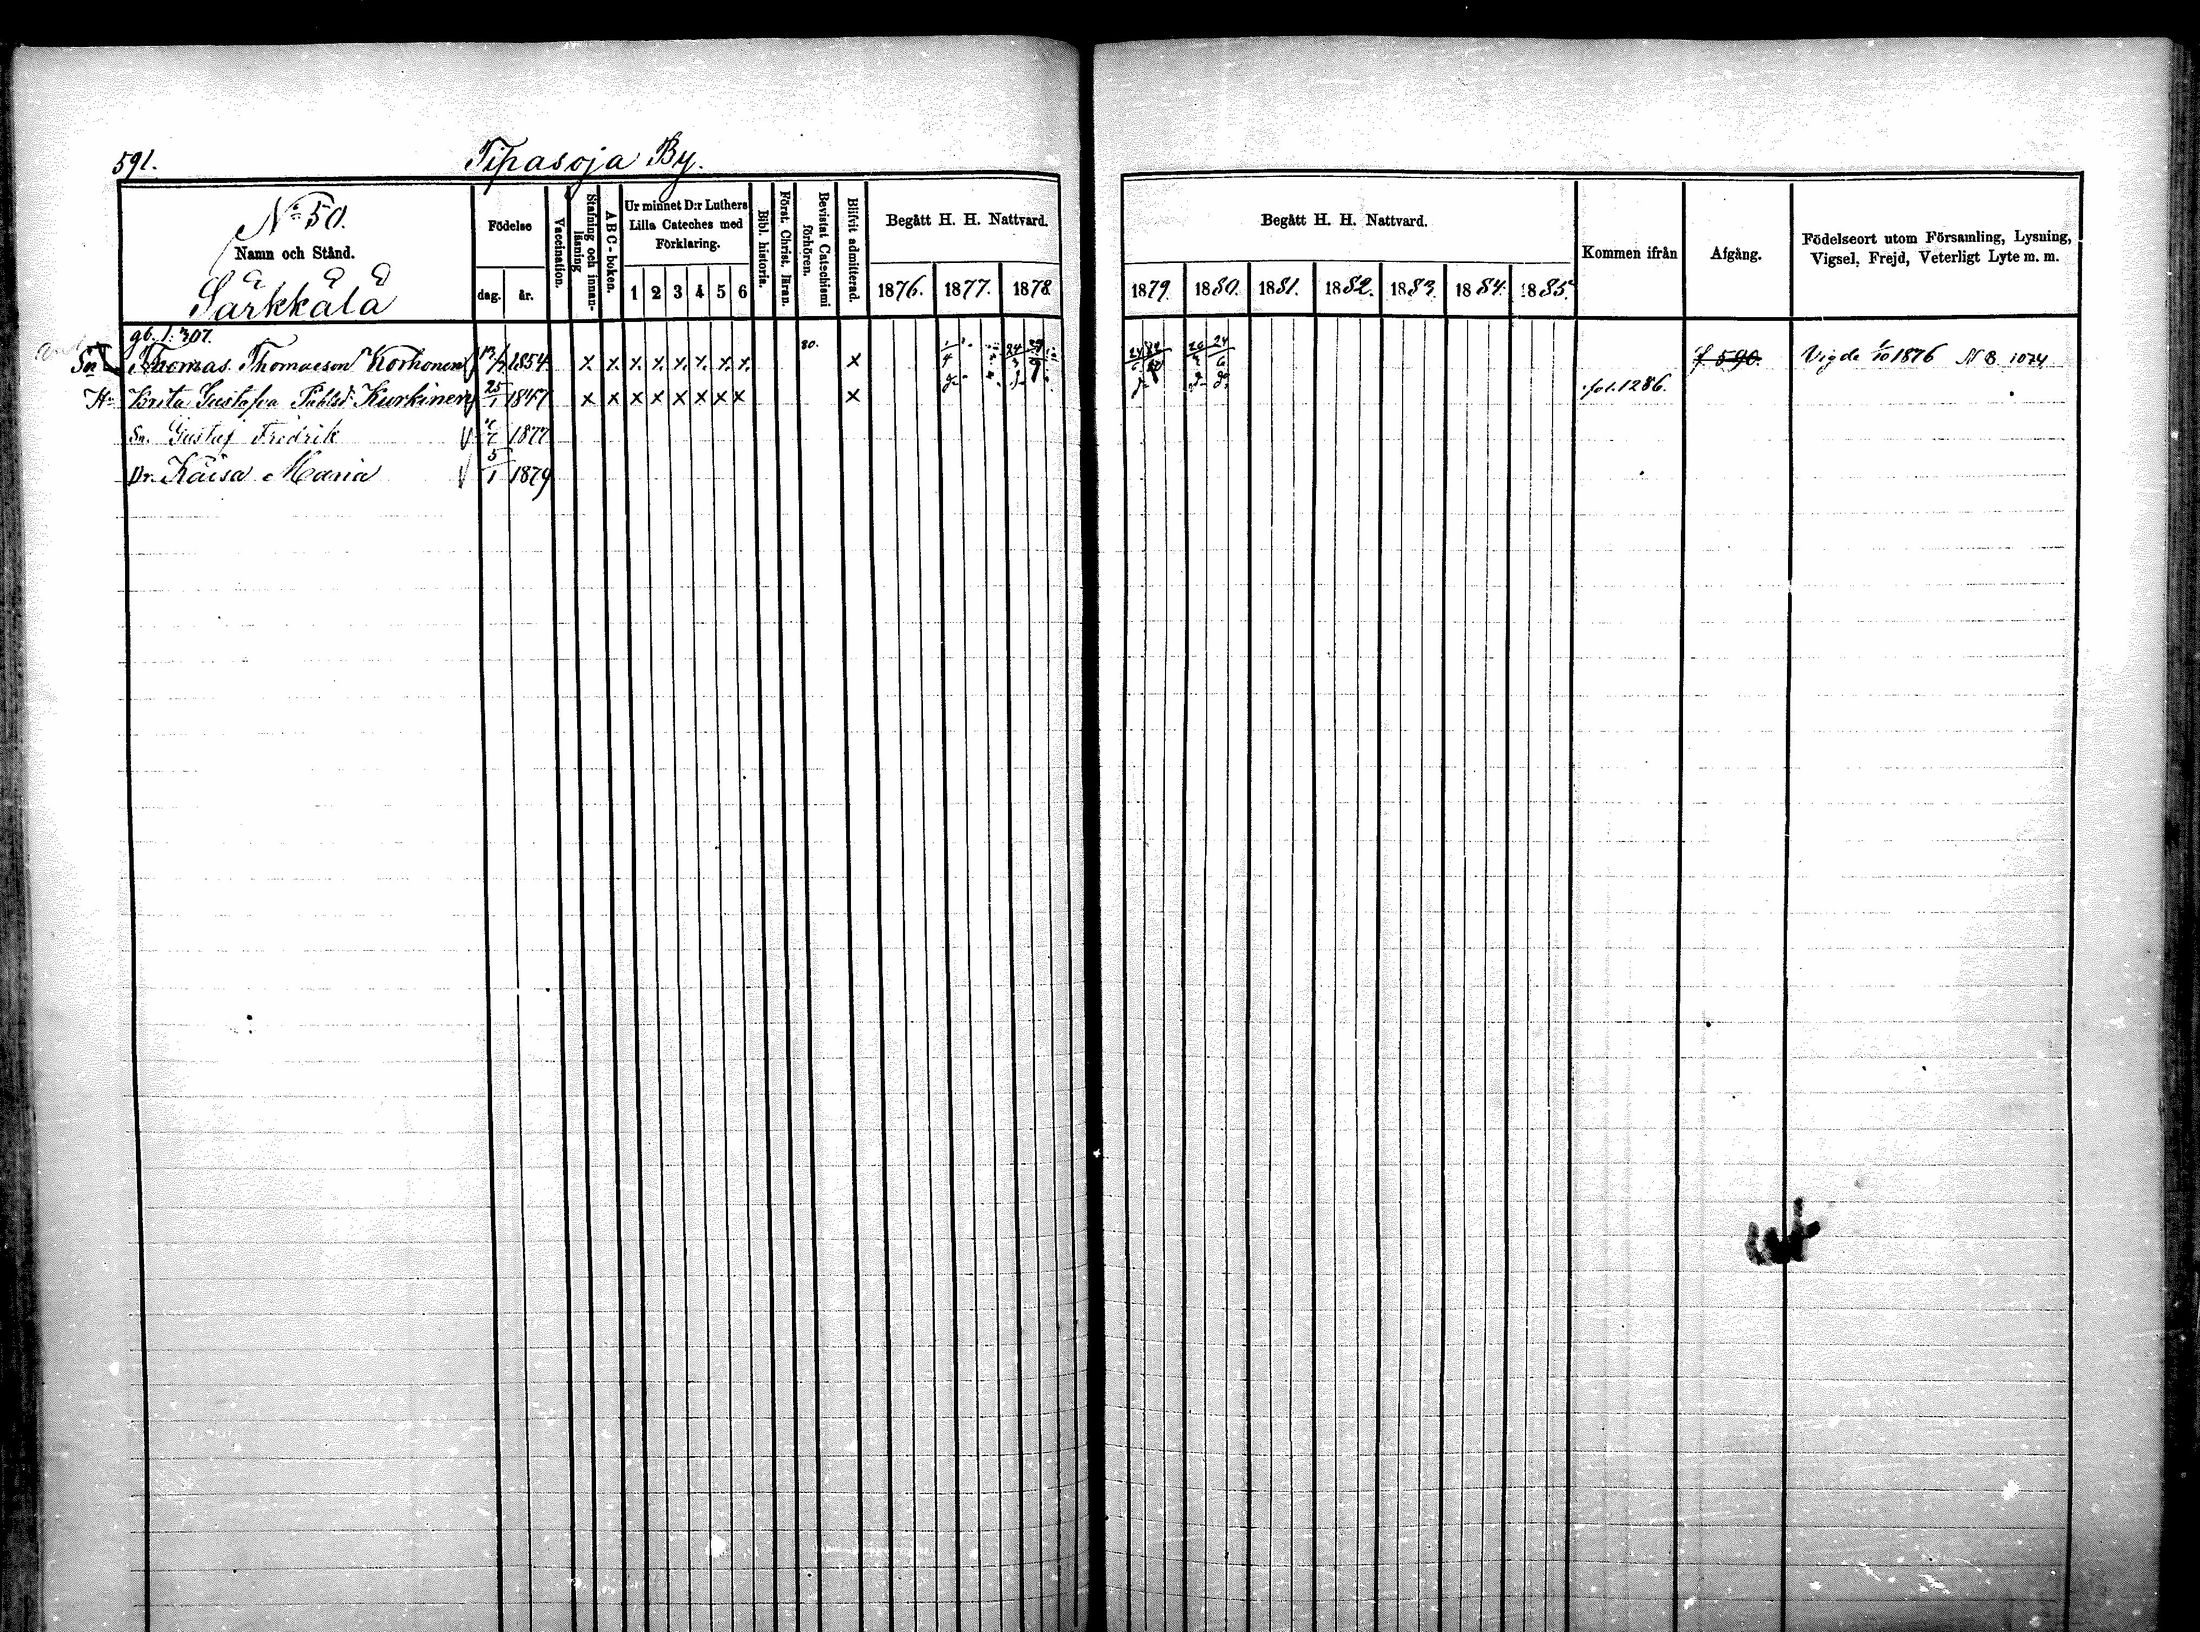 591.
Tipasoja By.
No 50.
Namn och Stånd.
Särkkälä
Födelse
dag.
år.
Vaccination.
Stafning och innanläsning
ABC-boken.
Ur minnet D:r Luthers
Lilla Cateches med
Förklaring.
1 2 3 4 5 6
Bibl. historia.
Först. Christ. läran.
Bevistat Catechismi
förhören.
Blifvit admitterad.
Begått H. H. Nattvard.
1876. 1877. 1878
Begått H. H. Nattvard.
1879. 1880. 1881. 1882. 1883. 1884. 1885.
Kommen ifrån
Afgång.
Födelseort utom Församling, Lysning,
Vigsel, Frejd, Veterligt Lyte m. m.
gb. 1. 307.
Sn Thomas Thomaeson Korhonen 1854 x x x x x x x x 80. x f 590. Vigde 1876 N B 1074
H. Brita Gustafva Pehlsd. Kurkinen 25/1 1847 x x x x x x x x x fol. 1286.
Sn. Gustaf Fredrik 1877
Dr. Kaisa Maria 5/1 1879